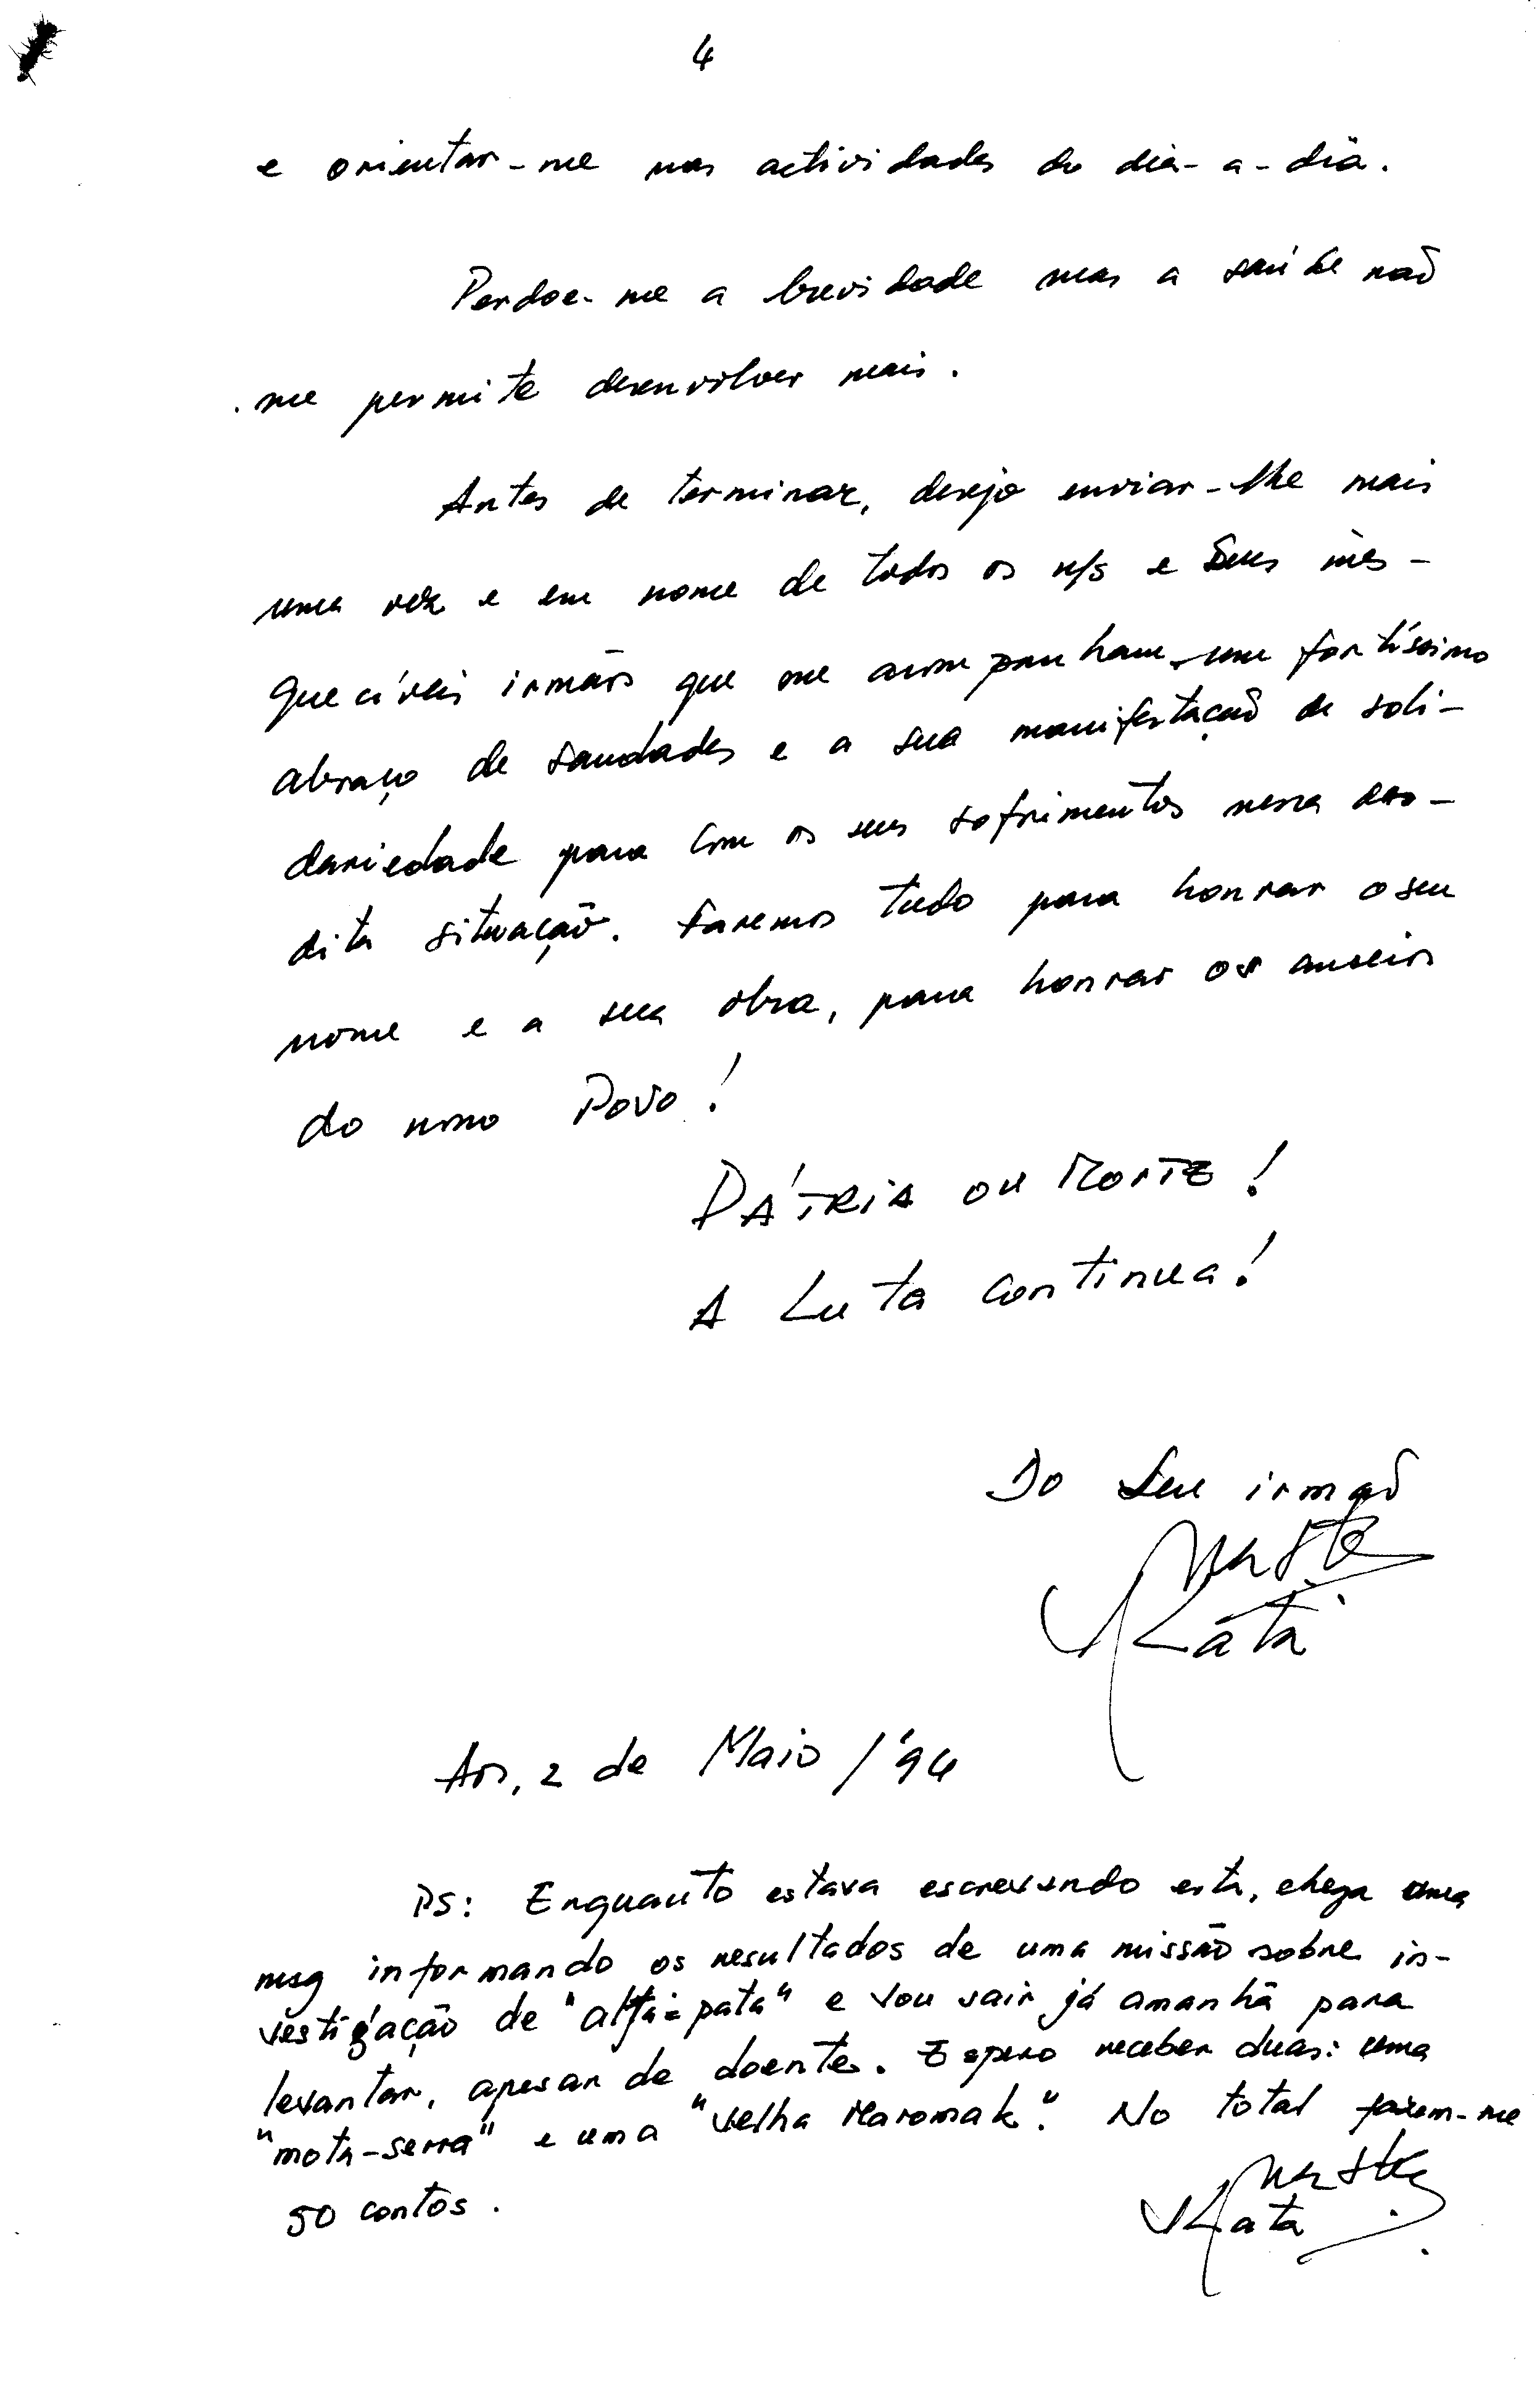 4
e orientar-me nas actividades do dia-a-dia.
Perdoe-me a brevidade mas a saúde não
me permite desenvolver mais.
Antes de terminar, desejo enviar-lhe mais
uma vez e em nome de todos os n/s e Seus ines-
quecíveis irmãos que me acompanham um fortíssimo
abraço de saudades e a sua manifestação de soli-
dariedade para com os seus sofrimentos nessa
dita situação. Faremos tudo para honrar o seu
nome e a sua obra, para honrar os anseios
do nosso Povo!
PÁTRIA OU MORTE!
A Luta continua!
Do Seu irmão
Aos, 2 de Maio /'94
PS: Enquanto estava escrevendo esta, chega uma
msg informando os resultados de uma missão sobre in-
vestigação de "alta-pata" e vou sair já amanhã para
levantar, apesar de doente. Espero receber duas: uma
"mota-serra" e uma "velha Maromak". No total fazem-me
50 contos.
Kata